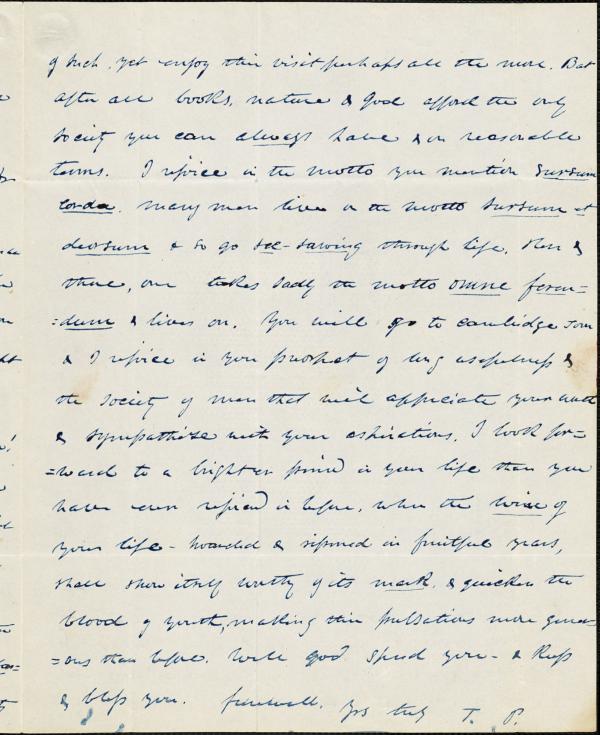 of such, yet enjoy thin visit perhaps all the more. But
after all books, nature & God afford the only
society you can always have & on reasonable
terms. I rejoice in the motto you mention sursum
corda. Many men live in the motto sursum et
deorsum & so go see-sawing through life. Here &
there, one takes sadly the motto omne feren=
=dum & lives on. You will go to Cambridge soon
& I rejoice in your prospect of long usefulness &
the society of men that will appreciate your
& sympathise with your aspirations. I look for=
=ward to a brighter period in your life than you
have ever rejoiced in before, when the wine of
your life - hoarded & ripened in fruitful years,
shall show itself worthy of its mark, & quicken the
blood of youth, making thin pulsations more gener=
=ous than before. Well God speed you - & keep
& bless you. farewell. Yrs truly T. P.